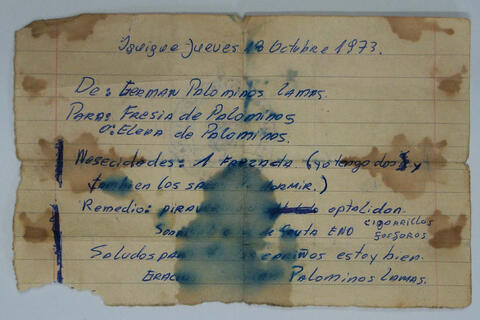 Iquique Jueves 18 Octubre 1973.
De: GERMAN Palominos Lamas.
PARA: FRESIA de PALOMINOS
o: ELENA de PALOMINOS.
Nesecidades: 1 FREZADA (yo tengo dos y
tambien los sacos dormir.)
Remedio: optalidon
ENO cigarrillos
fosforos
Saludos cariños estoy bien.
Palominos Lamas.